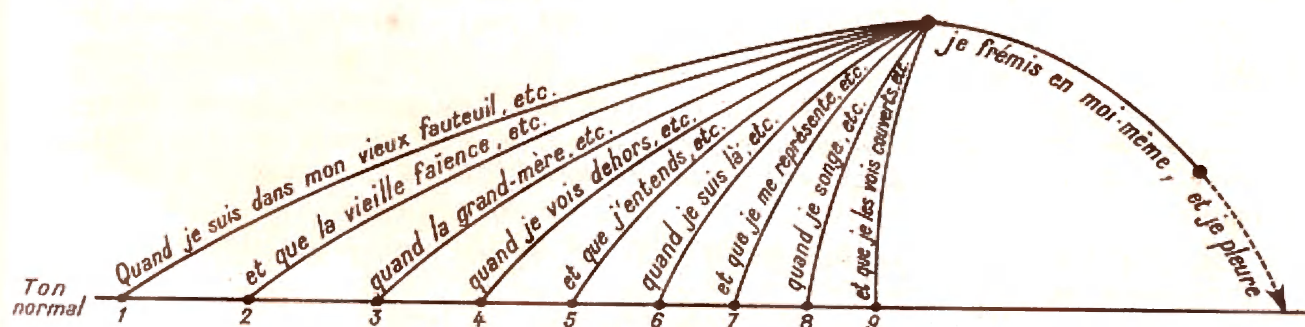 Quand je suis dans mon vieux fauteuil, etc.
et que la vieille faïence, etc.
quand la grand-mère, etc.
quand je vois dehors, etc.
et que j'entends, etc.
quand je suis là, etc.
et que je me représente, etc.
quand je songe, etc.
et que je les vois couverts, etc.
je frémis en moi-même,
et je pleure
Ton
normal
1 2 3 4 5 6 7 8 9